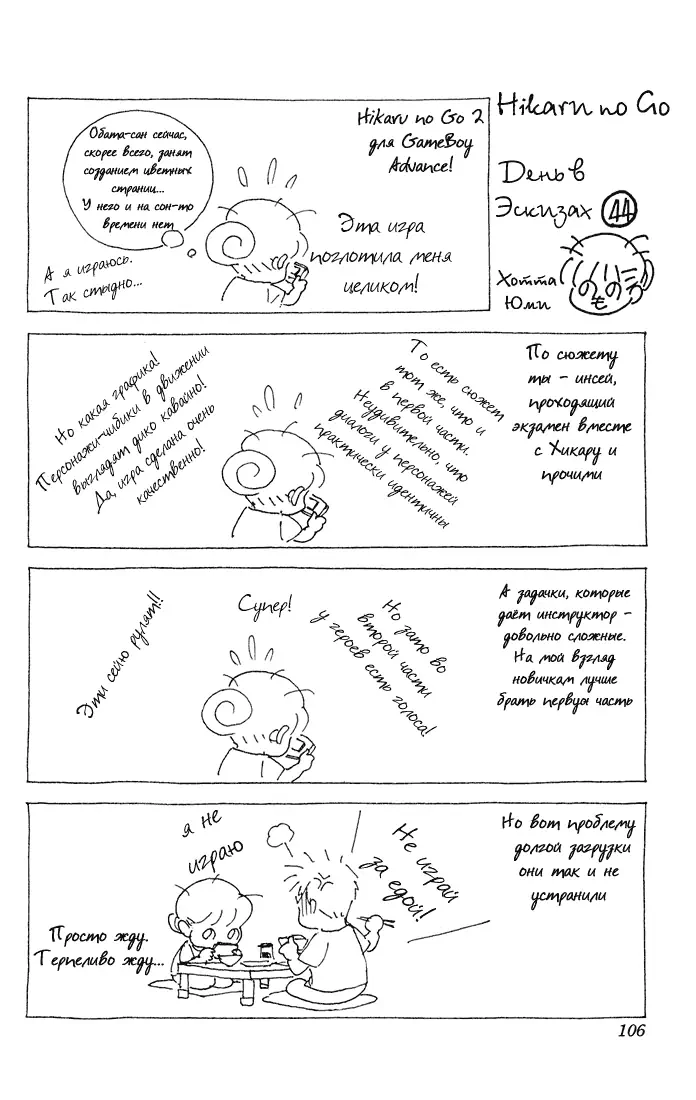 Hikaru no Go
День в
Эскизах 44
Хотта
Юми
Hikaru no Go 2
для GameBoy
Advance!
Эта игра
поглотила меня
целиком!
Обата-сан сейчас,
скорее всего, занят
созданием цветных
страниц...
У него и на сон-то
времени нет
А я играюсь.
Так стыдно...
По сюжету
ты - инсей,
проходящий
экзамен вместе
с Хикару и
прочими
То есть сюжет
тот же, что и
в первой части.
Неудивительно, что
диалоги у персонажей
практически идентичны
Но какая графика!
Персонажи-чибики в движении
выглядят дико кавайно!
Да, игра сделана очень
качественно!
А задачки, которые
даёт инструктор -
довольно сложные.
На мой взгляд
новичкам лучше
брать первую часть
Но зато во
второй части
у героев есть голоса!
Супер!
Эти сейю рулят!!
Но вот проблему
долгой загрузки
они так и не
устранили
Не играй
за едой!
я не
играю
Просто жду.
Терпеливо жду...
106